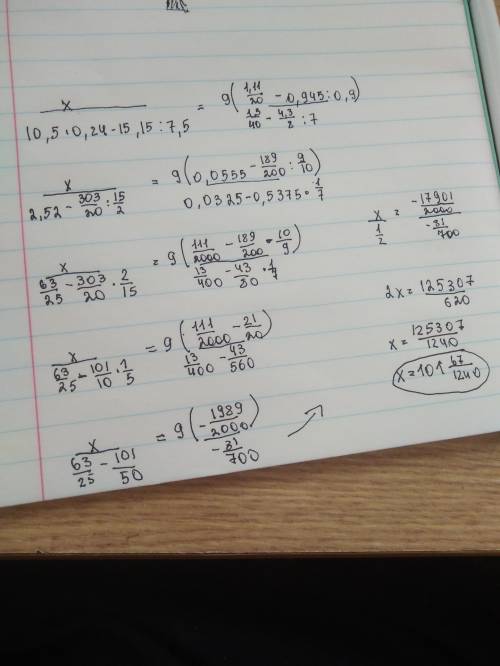 x / (10,5·0,24-15,15:7,5) = 9((1,11/20 - 0,945:0,9) / (1,3/40 - 4,3/8 : 7))
x / (2,52 - 303/20 : 15/2) = 9((0,0555 - 189/200 : 9/10) / (0,0325-0,5375·1/7))
x / (63/25 - 303/20 · 2/15) = 9((111/2000 - 189/200 · 10/9) / (13/400 - 43/80 · 1/7))
x / (63/25 - 101/10 · 1/5) = 9((111/2000 - 21/20) / (13/400 - 43/560))
x / (63/25 - 101/50) = 9((-1989/2000) / (-31/700))
x / (1/2) = (-17901/2000) / (-31/700)
2x = 125307/620
x = 125307/1240
x = 101 67/1240